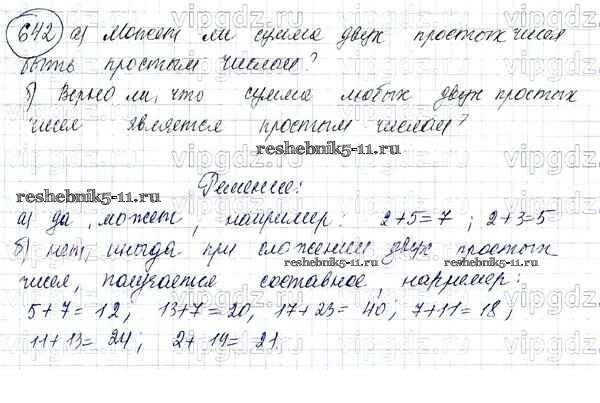 642 а) Может ли сумма двух простых чисел
быть простым числом?
б) Верно ли, что сумма любых двух простых
чисел является простым числом?
reshebnik5-11.ru
reshebnik5-11.ru
Решение:
а) да, может, например: 2+5=7; 2+3=5
б) нет, иногда при сложении двух простых
reshebnik5-11.ru reshebnik5-11.ru
чисел, получается составное, например:
5+7=12; 13+7=20, 17+23=40; 7+11=18;
11+13=24; 2+19=21.